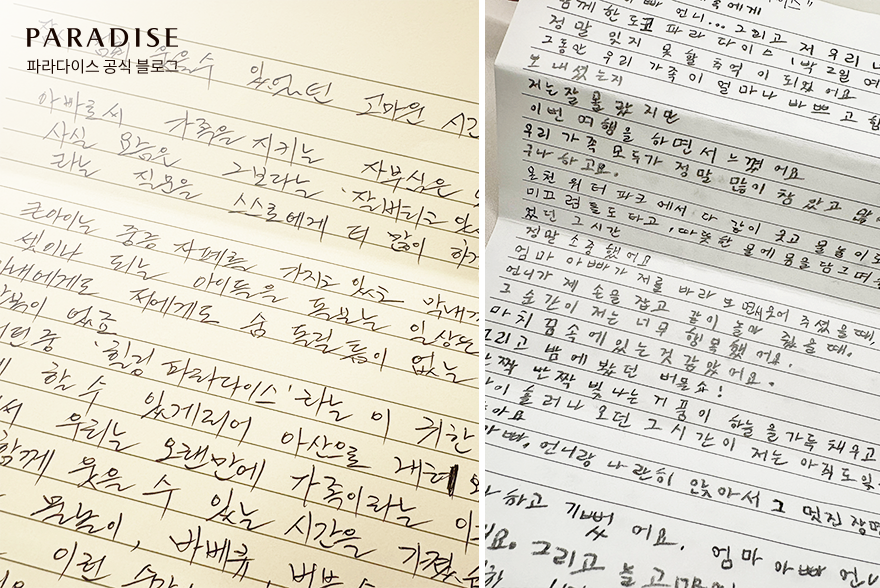 PARADISE
파라다이스 공식 블로그
웃을 수 있었던 고마운 시간
아빠로서 가족을 지키는 자부심은
사실 요즘은 그보다는 '잘 버티고 있
라는 질문을 스스로에게 더 많이 하
큰아이는 중증 자폐를 가지고 있고 막내가
셋이나 되는 아이들을 돌보는 일상은
아내에게도 저에게도 숨 돌릴 틈이 없는
없음
던 중 '힐링 파라다이스'라는 이 귀한
할 수 있게 되어 아산으로
우리는 오랜만에 가족이라는
함께 웃을 수 있는 시간을 가졌습
물놀이, 바베큐, 버블
이런
에게
아빠 언니... 그리고 저 우리
함께한 도고 파라다이스 1박 2일 여
정말 잊지 못할 추억이 되었어요
그동안 우리 가족이 얼마나 바쁘고 힘
보내셨는지
저는 잘 몰랐지만
이번 여행을 하면서 느꼈어요
우리 가족 모두가 정말 많이 참았고 많이
구나 하고요.
온천 워터파크에서 다 같이 웃고 물놀이도
미끄럼틀도 타고, 따뜻한 물에 몸을 담그며
었던 그 시간
정말 소중했어요
엄마 아빠가 저를 바라보면서 웃어 주셨을 때,
언니가 제 손을 잡고 같이 놀아 줬을 때.
그 순간이 저는 너무 행복했어요.
마치 꿈속에 있는 것 같았어요.
그리고 밤에 봤던 버블쇼!
짝 반짝 빛나는 거품이 하늘을 가득 채우고
이 흘러나오던 그 시간이 저는 아직도 잊
아요
아빠, 언니랑 나란히 앉아서 그 멋진 장면
하고 기뻤어요. 엄마 아빠 언니
요. 그리고 놀고